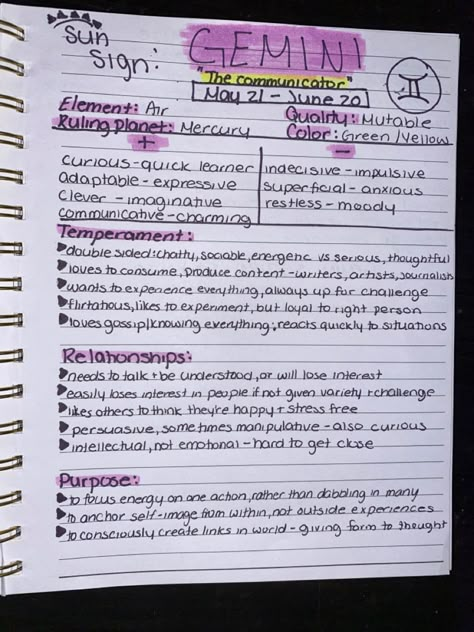 Sun
Sign: GEMINI
"The communicator"
May 21 - June 20
♊
Element: Air
Quality: Mutable
Ruling Planet: Mercury
Color: Green/Yellow
+
curious-quick learner
adaptable-expressive
clever-imaginative
communicative-charming
-
indecisive-impulsive
superficial-anxious
restless-moody
Temperament:
double sided: chatty, sociable, energetic vs serious, thoughtful
loves to consume, produce content-writers, artists, journalists
wants to experience everything, always up for challenge
flirtatious, likes to experiment, but loyal to right person
loves gossip/knowing everything; reacts quickly to situations
Relationships:
needs to talk + be understood, or will lose interest
easily loses interest in people if not given variety + challenge
likes others to think they're happy + stress free
persuasive, sometimes manipulative - also curious
intellectual, not emotional - hard to get close
Purpose:
to focus energy on one action, rather than dabbling in many
to anchor self-image from within, not outside experiences
to consciously create links in world - giving form to thought